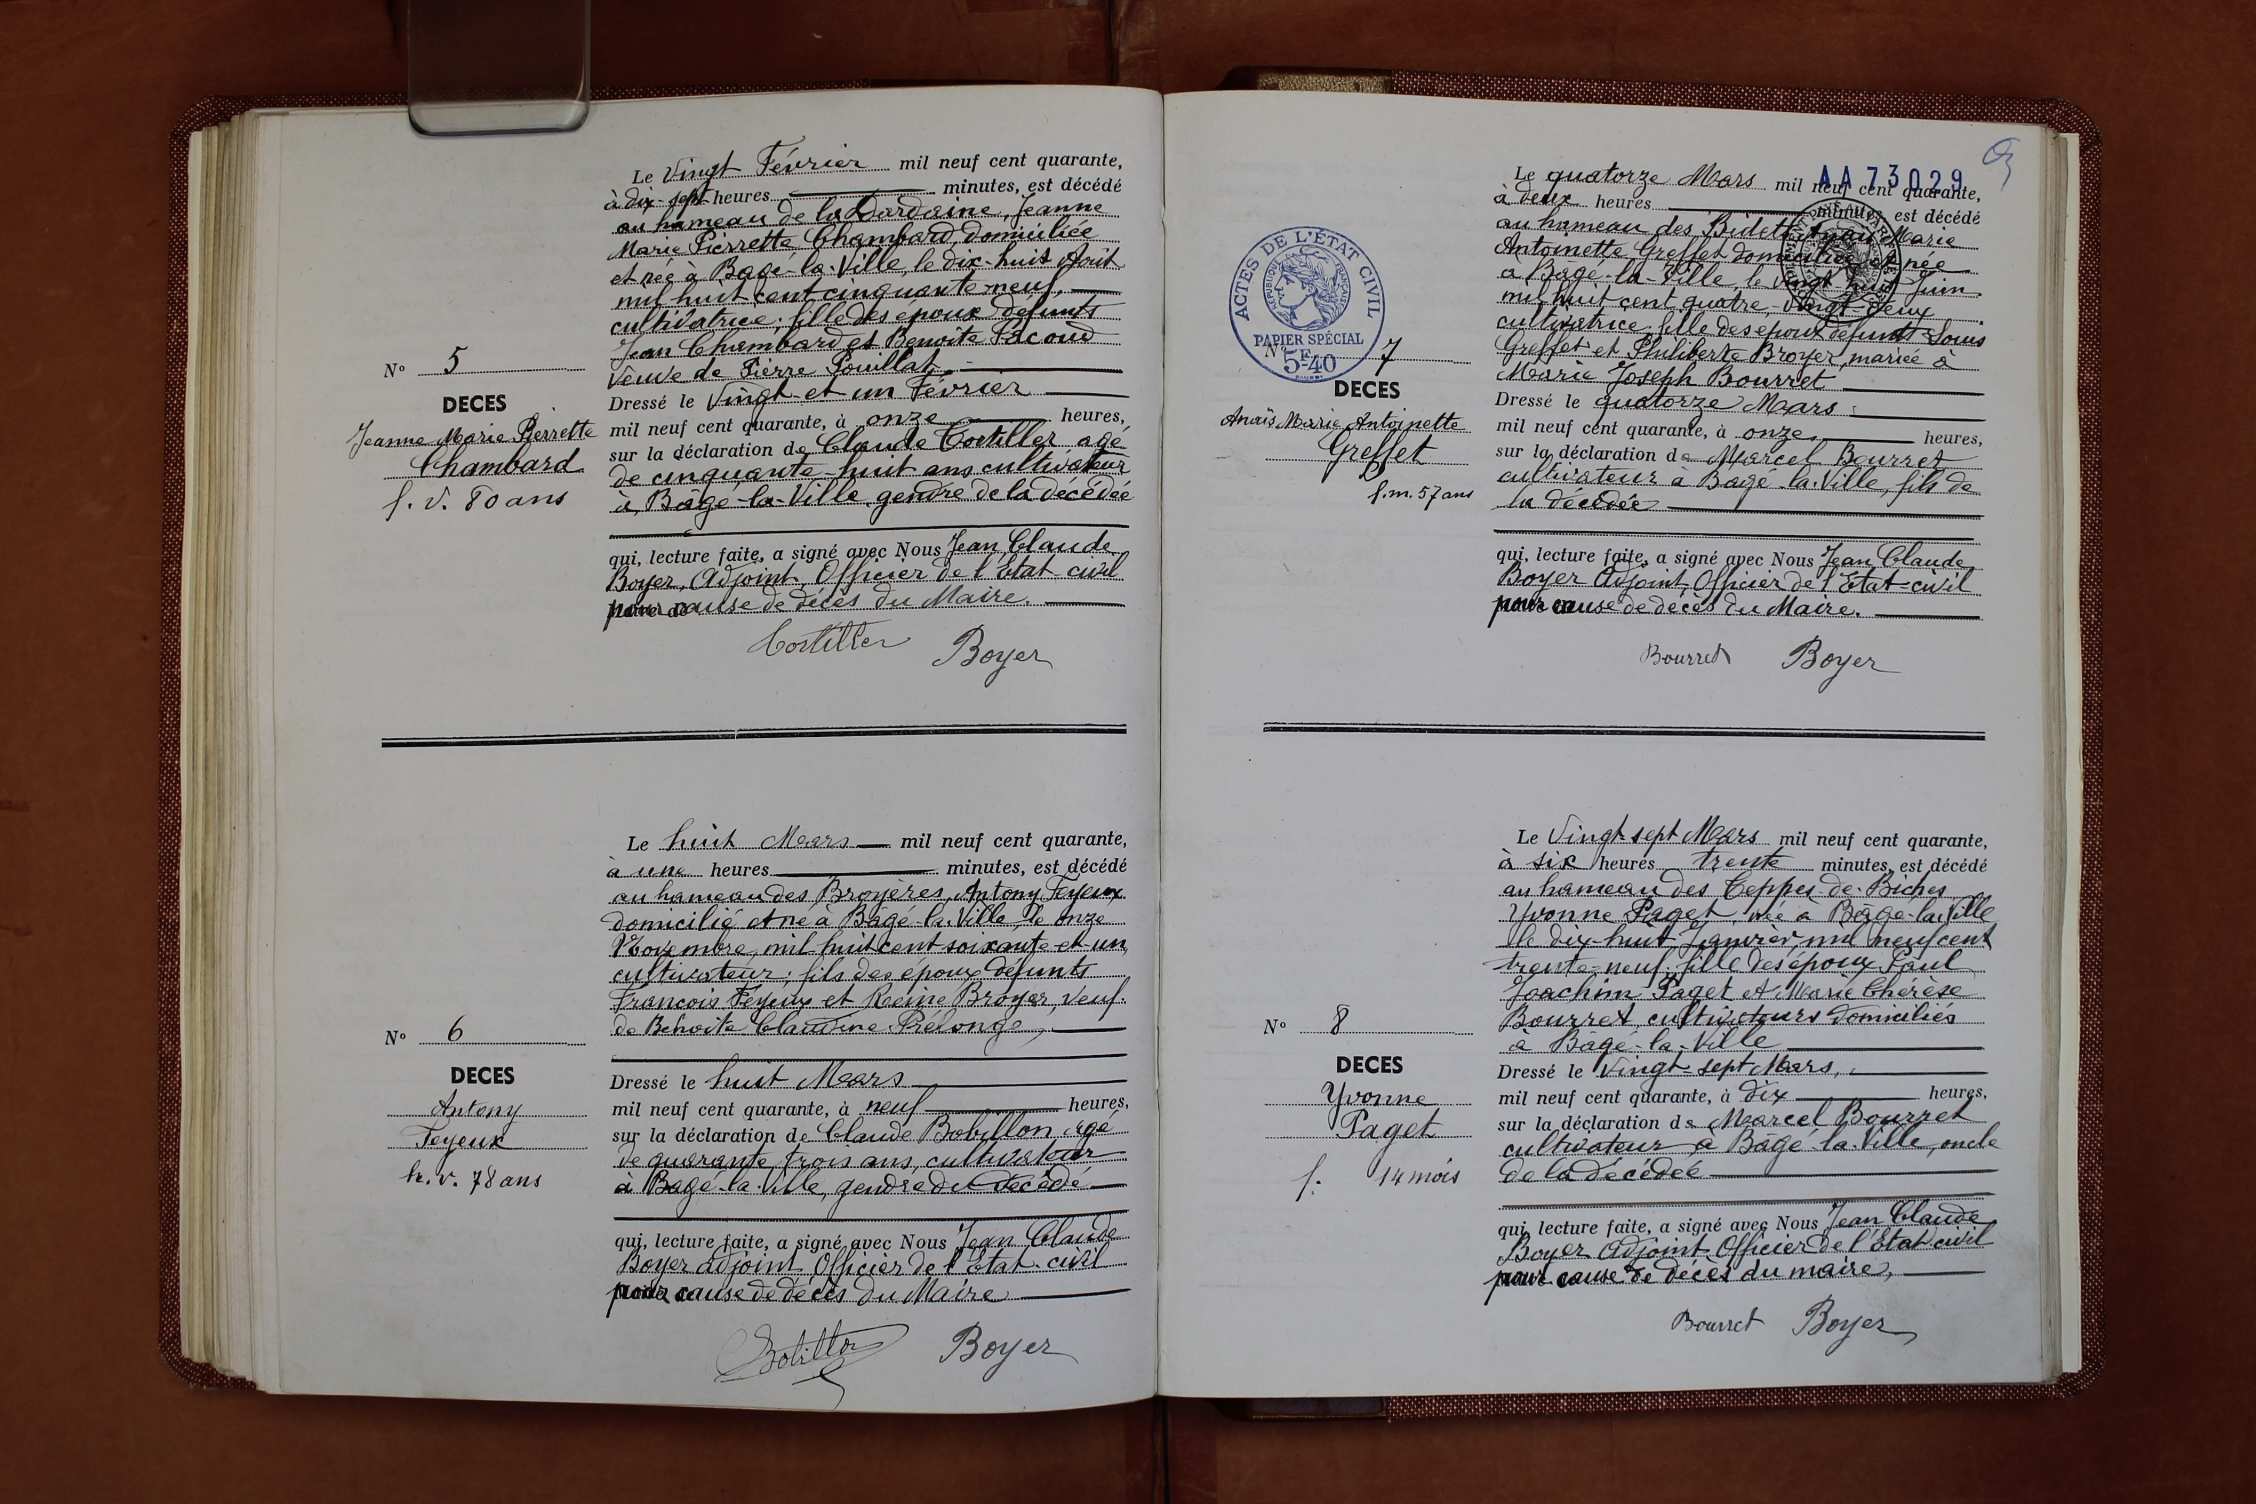 Le Vingt Février mil neuf cent quarante,
à dix-sept heures minutes, est décédé
au hameau de la Dardaine, Jeanne
Marie Pierrette Chambard, domiciliée
et née à Bagé-la-Ville, le dix-huit Août
mil huit cent cinquante-neuf,
cultivatrice; fille des époux défunts
Jean Chambard et Benoite Pacoud
Veuve de Pierre Pouillat,
Dressé le Vingt-et-un Février
mil neuf cent quarante, à onze heures,
sur la déclaration de Claude Cortiller agé
de cinquante-huit ans cultivateur
à Bâgé-la-Ville gendre de la décédée
qui, lecture faite, a signé avec Nous Jean Claude
Boyer, Adjoint, Officier de l'Etat civil
pour cause de décès du Maire.
Cortiller Boyer
N° 5
DECES
Jeanne Marie Pierrette
Chambard
f. v. 80 ans
Le huit Mars mil neuf cent quarante,
à une heures minutes, est décédé
au hameau des Broyères, Antony Feyeux
domicilié et né à Bâgé-la-Ville, le onze
Novembre mil huit cent soixante-et-un,
cultivateur; fils des époux défunts
Francois Feyeux et Reine Broyer, Veuf
de Benoite Claudine Prélonge,
Dressé le huit Mars
mil neuf cent quarante, à neuf heures,
sur la déclaration de Claude Bobillon agé
de quarante trois ans, cultivateur
à Bagé-la-Ville, gendre du décédé
qui, lecture faite, a signé avec Nous Jean Claude
Boyer adjoint Officier de l'Etat-civil
pour cause de décès du Maire
Bobillon Boyer
N° 6
DECES
Antony
Feyeux
h. v. 78 ans
AA 73029
Le quatorze Mars mil neuf cent quarante,
à deux heures minutes est décédé
au hameau des Bidets, Anaïs Marie
Antoinette Greffet domiciliée et née
à Bagé-la-Ville, le vingt huit Juin
mil huit cent quatre-vingt-deux
cultivatrice, fille des époux défunts Louis
Greffet et Philiberte Broyer, mariée à
Marie Joseph Bourret
Dressé le quatorze Mars
mil neuf cent quarante, à onze heures,
sur la déclaration de Marcel Bourret
cultivateur à Bagé-la-Ville, fils de
la décédée
qui, lecture faite, a signé avec Nous Jean Claude
Boyer Adjoint, Officier de l'Etat-civil
pour cause de décès du Maire.
Bourret Boyer
ACTES DE L'ÉTAT CIVIL
RÉPUBLIQUE FRANÇAISE
PAPIER SPÉCIAL
5F40
N° 7
DECES
Anaïs Marie Antoinette
Greffet
f. m. 57 ans
Le Vingt-sept Mars mil neuf cent quarante,
à six heures trente minutes, est décédé
au hameau des Teppes-de-Biches
Yvonne Paget, née à Bâgé-la-Ville
le dix-huit Janvier mil neuf cent
trente-neuf, fille des époux Paul
Joachim Paget et Marie Thérèse
Bourret, cultivateurs domiciliés
à Bâgé-la-Ville
Dressé le Vingt-sept Mars,
mil neuf cent quarante, à dix heures,
sur la déclaration de Marcel Bourret
cultivateur à Bagé-la-Ville, oncle
de la décédée
qui, lecture faite, a signé avec Nous Jean Claude
Boyer Adjoint Officier de l'Etat civil
pour cause de décès du maire,
Bourret Boyer
N° 8
DECES
Yvonne
Paget
f. 14 mois